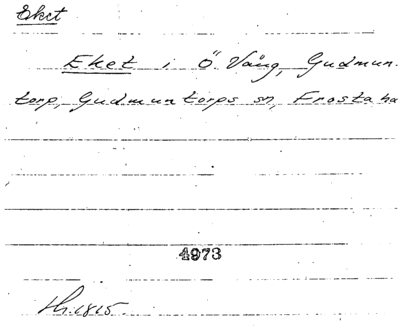 Eket
Eket i Ö. Vång, Gudmun-
torp, Gudmuntorps sn, Frosta hd
4973